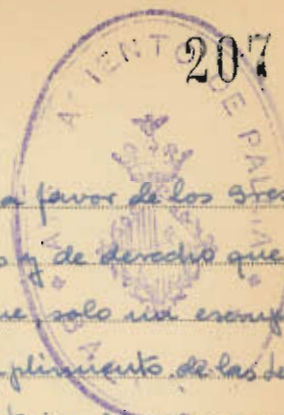 207
AMIENTO DE PALMA
a favor de los Sres
s y de derecho que
ue solo un escrup
plimiento de las de